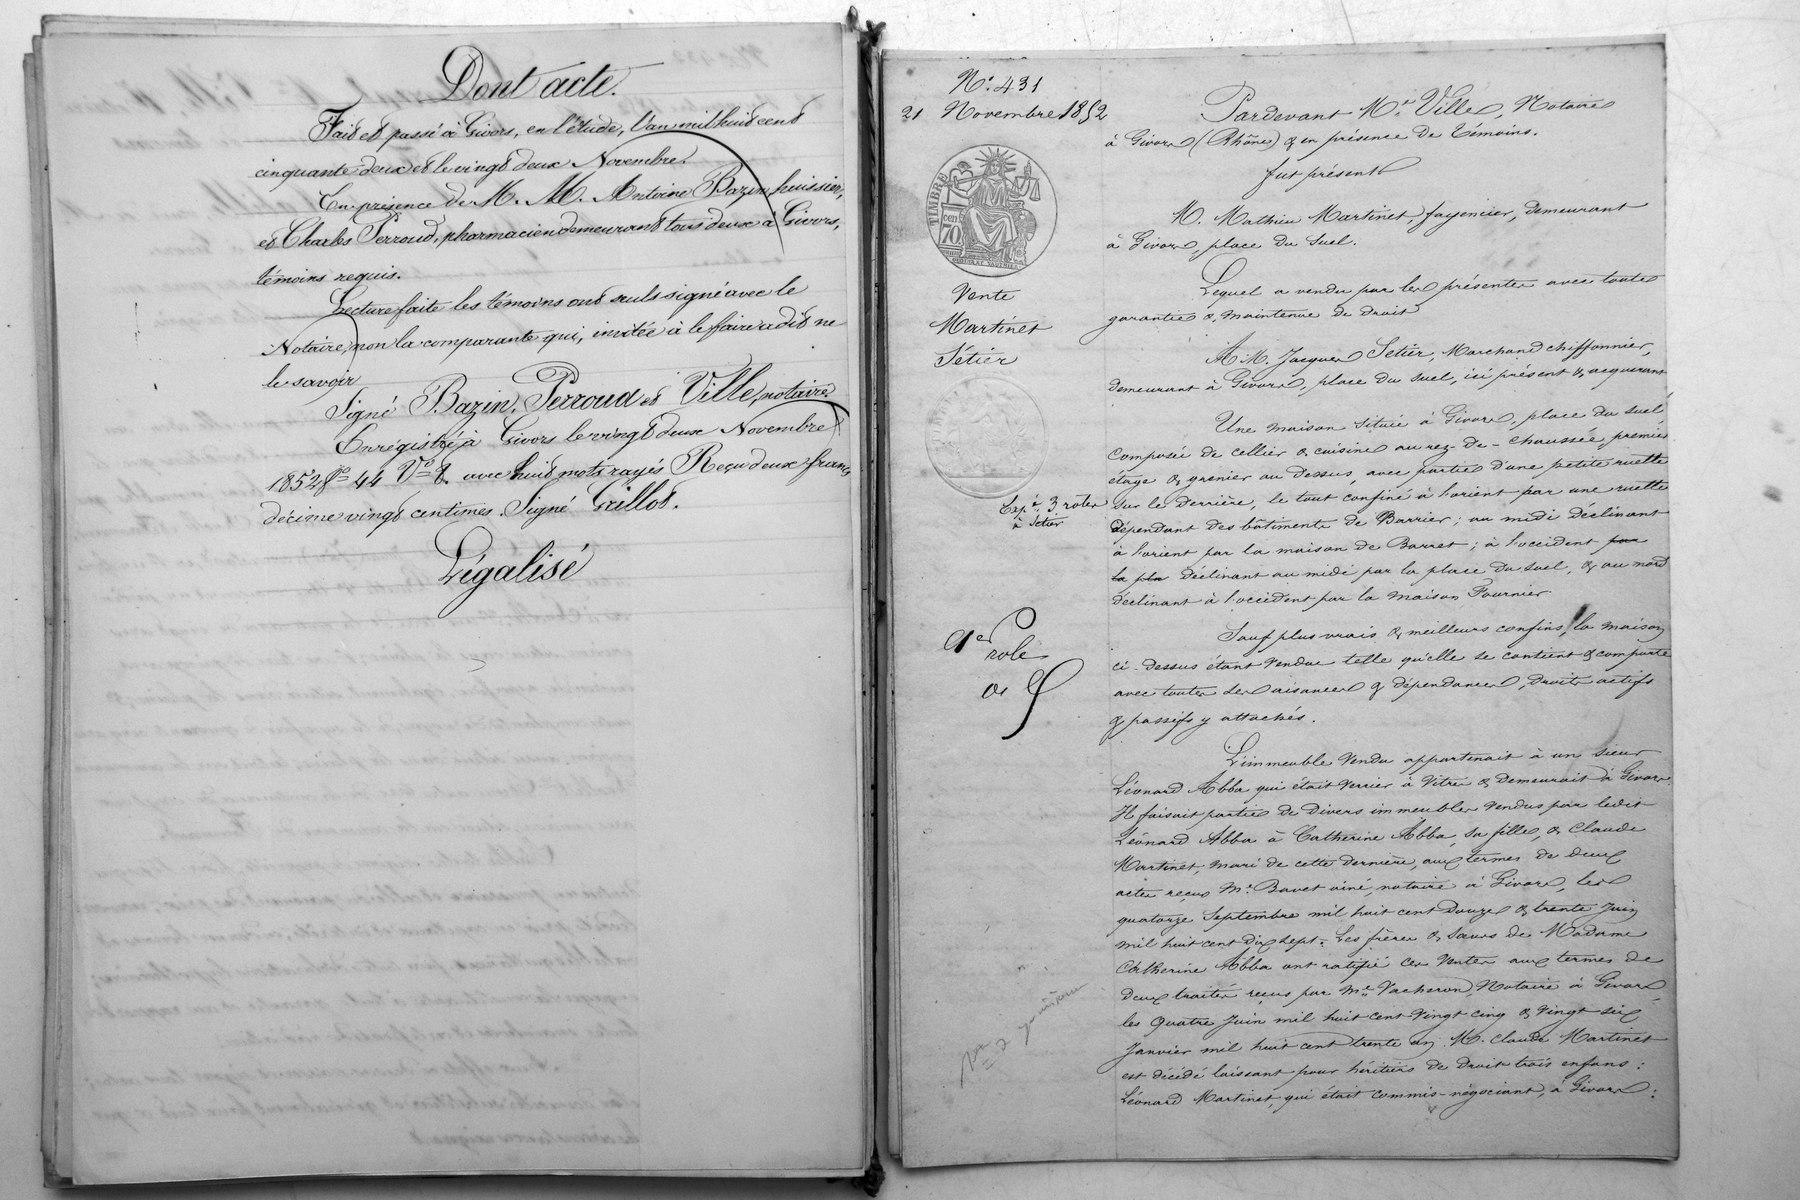 Dont acte.
Fait et passé à Givors, en l'étude, l'an mil huit cent
cinquante deux et le vingt deux Novembre.
En présence de M. M. Antoine Bazin, huissier,
et Charles Perroud, pharmacien demeurant tous deux à Givors,
témoins requis.
Lecture faite les témoins ont seuls signé avec le
Notaire, non la comparante qui, invitée à le faire a dit ne
le savoir
Signé Bazin, Perroud et Ville, notaire.
Enregistré à Givors le vingt deux Novembre
1852 fo 44 Vo 8. avec huit mots rayés Reçu deux francs
décime vingt centimes. Signé Grillot.
Légalisé
No. 431
21 Novembre 1852
TIMBRE
cen
70
Vente
Martinet
Sétier
Exp. 3 roles
à Setier
1er
role
Pardevant Me. Ville, Notaire
à Givors (Rhône) & en présence de témoins.
fut présent
M. Mathieu Martinet, fayencier, demeurant
à Givors, place du Suel.
Lequel a vendu par les présentes avec toute
garantie & maintenue de droit
A M. Jacques Setier, Marchand chiffonnier,
demeurant à Givors, place du Suel, ici présent & acquérant
Une maison située à Givors, place du Suel
composée de cellier & cuisine au rez-de-chaussée, premier
étage & grenier au dessus, avec partie d'une petite ruelle
sur le derrière, le tout confiné à l'orient par une ruelle
dépendant des bâtiments de Barrier; au midi déclinant
à l'orient par la maison de Barret; à l'occident par
la pla déclinant au midi par la place du Suel, & au nord
déclinant à l'occident par la maison Fournier.
Sauf plus vrais & meilleurs confins, la maison
ci-dessus étant vendue telle qu'elle se contient & comporte
avec toutes ses aisances & dépendances, droits actifs
& passifs y attachés.
L'immeuble vendu appartenait à un sieur
Léonard Abba qui était verrier à vitre & demeurait à Givors
Il faisait partie de divers immeubles vendus par ledit
Léonard Abba à Catherine Abba, sa fille, & Claude
Martinet, mari de cette dernière, aux termes de deux
actes reçus Me. Bavet ainé, notaire à Givors, les
quatorze Septembre mil huit cent douze & trente Juin
mil huit cent dix sept. Les frères & sœurs de Madame
Catherine Abba ont ratifié ces ventes aux termes de
deux traités reçus par Me. Vacheron, Notaire à Givors
les quatre Juin mil huit cent vingt cinq & vingt six
Janvier mil huit cent trente un. M. Claude Martinet
est décédé laissant pour héritiers de droit trois enfans:
Léonard Martinet, qui était commis-négociant, à Givors: